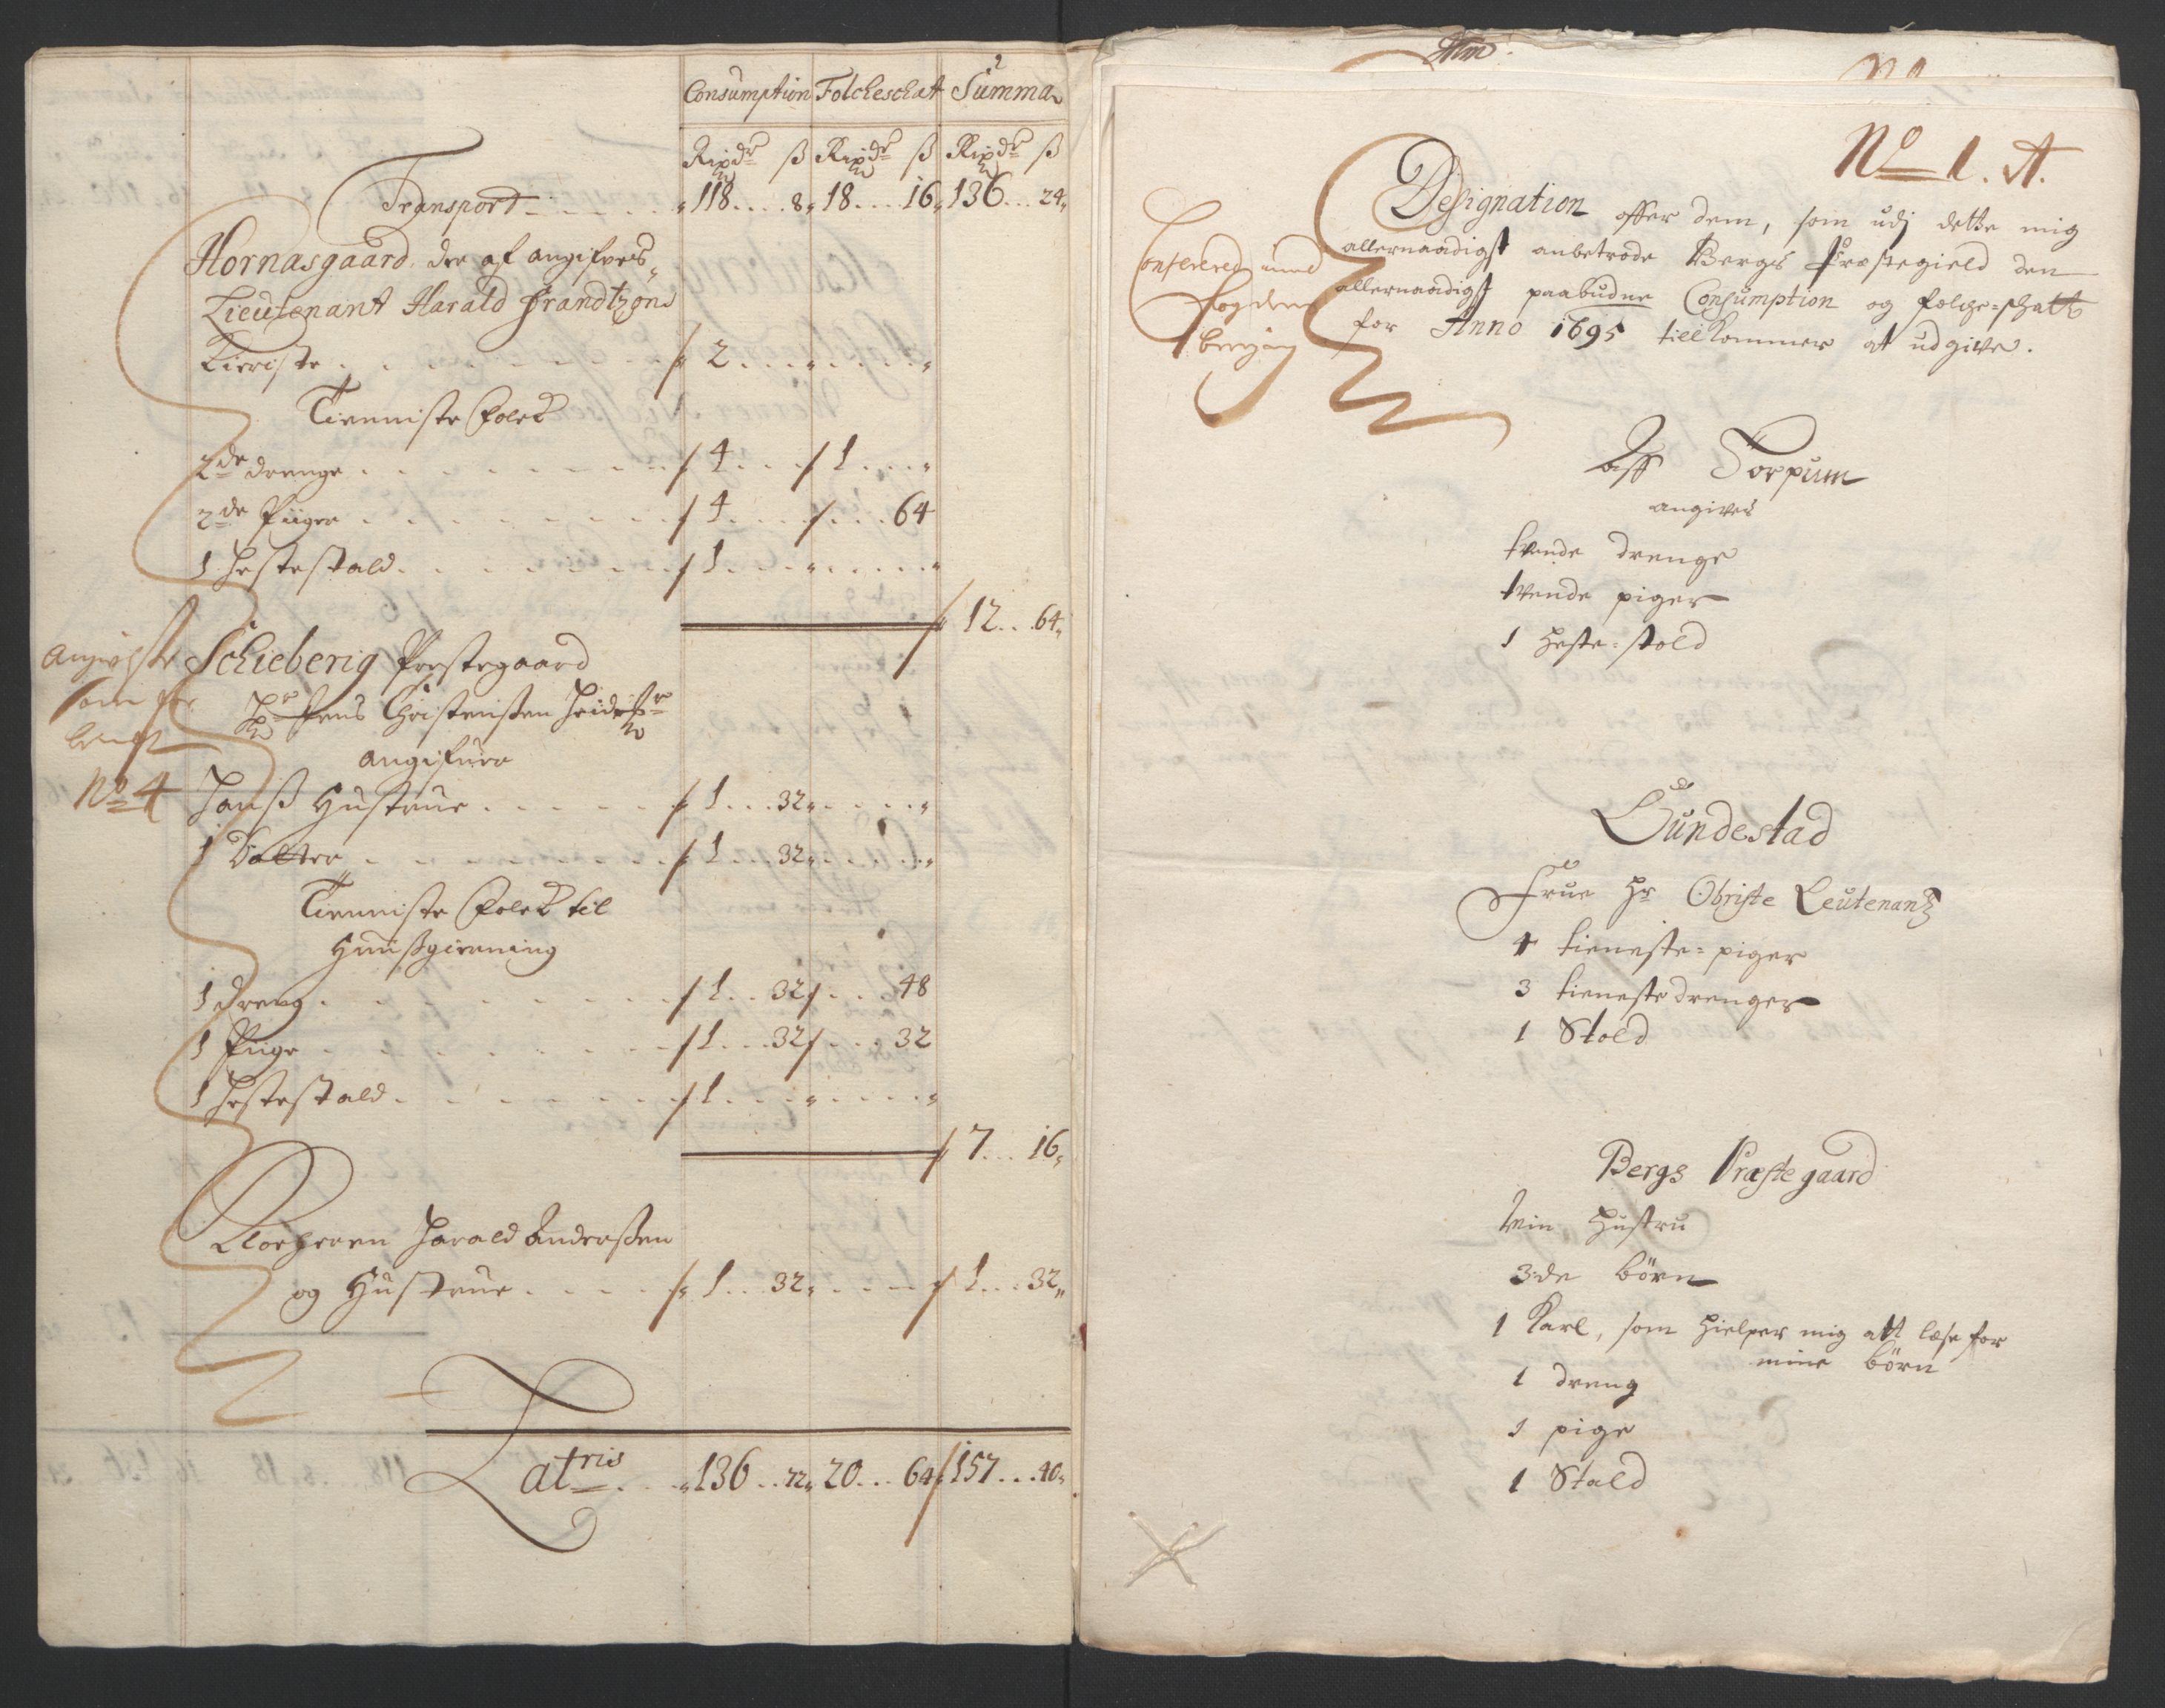 Consumption Folcheschat Summa
Rixdr ß Rixdr ß Rixdr ß
Transport 118 8 18 16 136 24
Hornæsgaard der af angifves
Lieutenant Harald Frandtzøns
Kieriste 2
Tienniste Folck
2de drenge 4 1
2de Piiger 4 64
1 Hestestald 1
12 64
Angivelse
Schieberig Prestegaard
Hr Jens Christenßen
angifver
No 4
Hanß Hustrue 1 32
1 Datter 1 32
Tienniste Folck til
Huußgierning
1 Dreng 1 32 48
1 Piige 1 32 32
1 Hestestald 1
7 16
Klocheren Harald Anderßen
og Hustrue 1 32 1 32
Latris 136 72 20 64 157 40
No 1. A.
Designation offer dem, som udj dette mig
allernaadigst anbetrode Bergs Præstegield den
allernaadigst paabudne Consumption og folche-schatt
for Anno 1695 tilkommer at udgive.
Confereret med
fogdens
Aff Torpum
angives
tvende drenge
tvende piger
1 heste-stold
Gundestad
Frue Hr Obriste Leutenantz
4 tieneste-piger
3 tieneste drenger
1 Stold
Bergs Præstegaard
Min Hustru
3de børn
1 Karl, som hielper mig att læse for
mine børn
1 dreng
1 pige
1 Stald